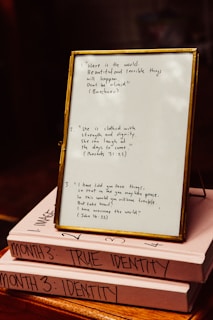 "Here is the world.
Beautiful and terrible things
will happen.
Don't be afraid."
(Buechner)
"She is clothed with
strength and dignity.
She can laugh at
the days to come."
(Proverbs 31:25)
"I have told you these things,
so that in me you may have peace.
In this world you will have trouble.
But take heart!
I have overcome the world."
(John 16:33)
MONTH 3: TRUE IDENTITY
MONTH 3: IDENTITY